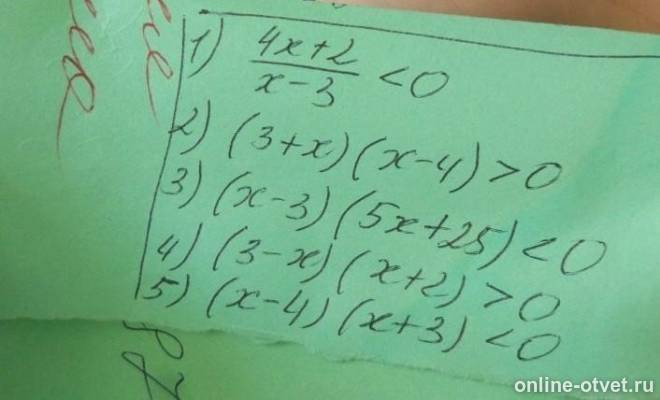 1) (4x+2)/(x-3) < 0
2) (3+x)(x-4) > 0
3) (x-3)(5x+25) < 0
4) (3-x)(x+2) > 0
5) (x-4)(x+3) < 0
online-otvet.ru